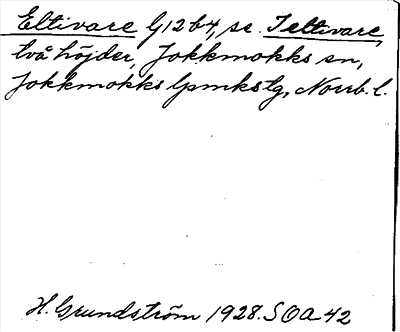 Eltivare G12b4, se. Jeltivare,
två höjder, Jokkmokks sn,
Jokkmokks lpmkstg, Norrb. l.
H. Grundström 1928. SOA 42